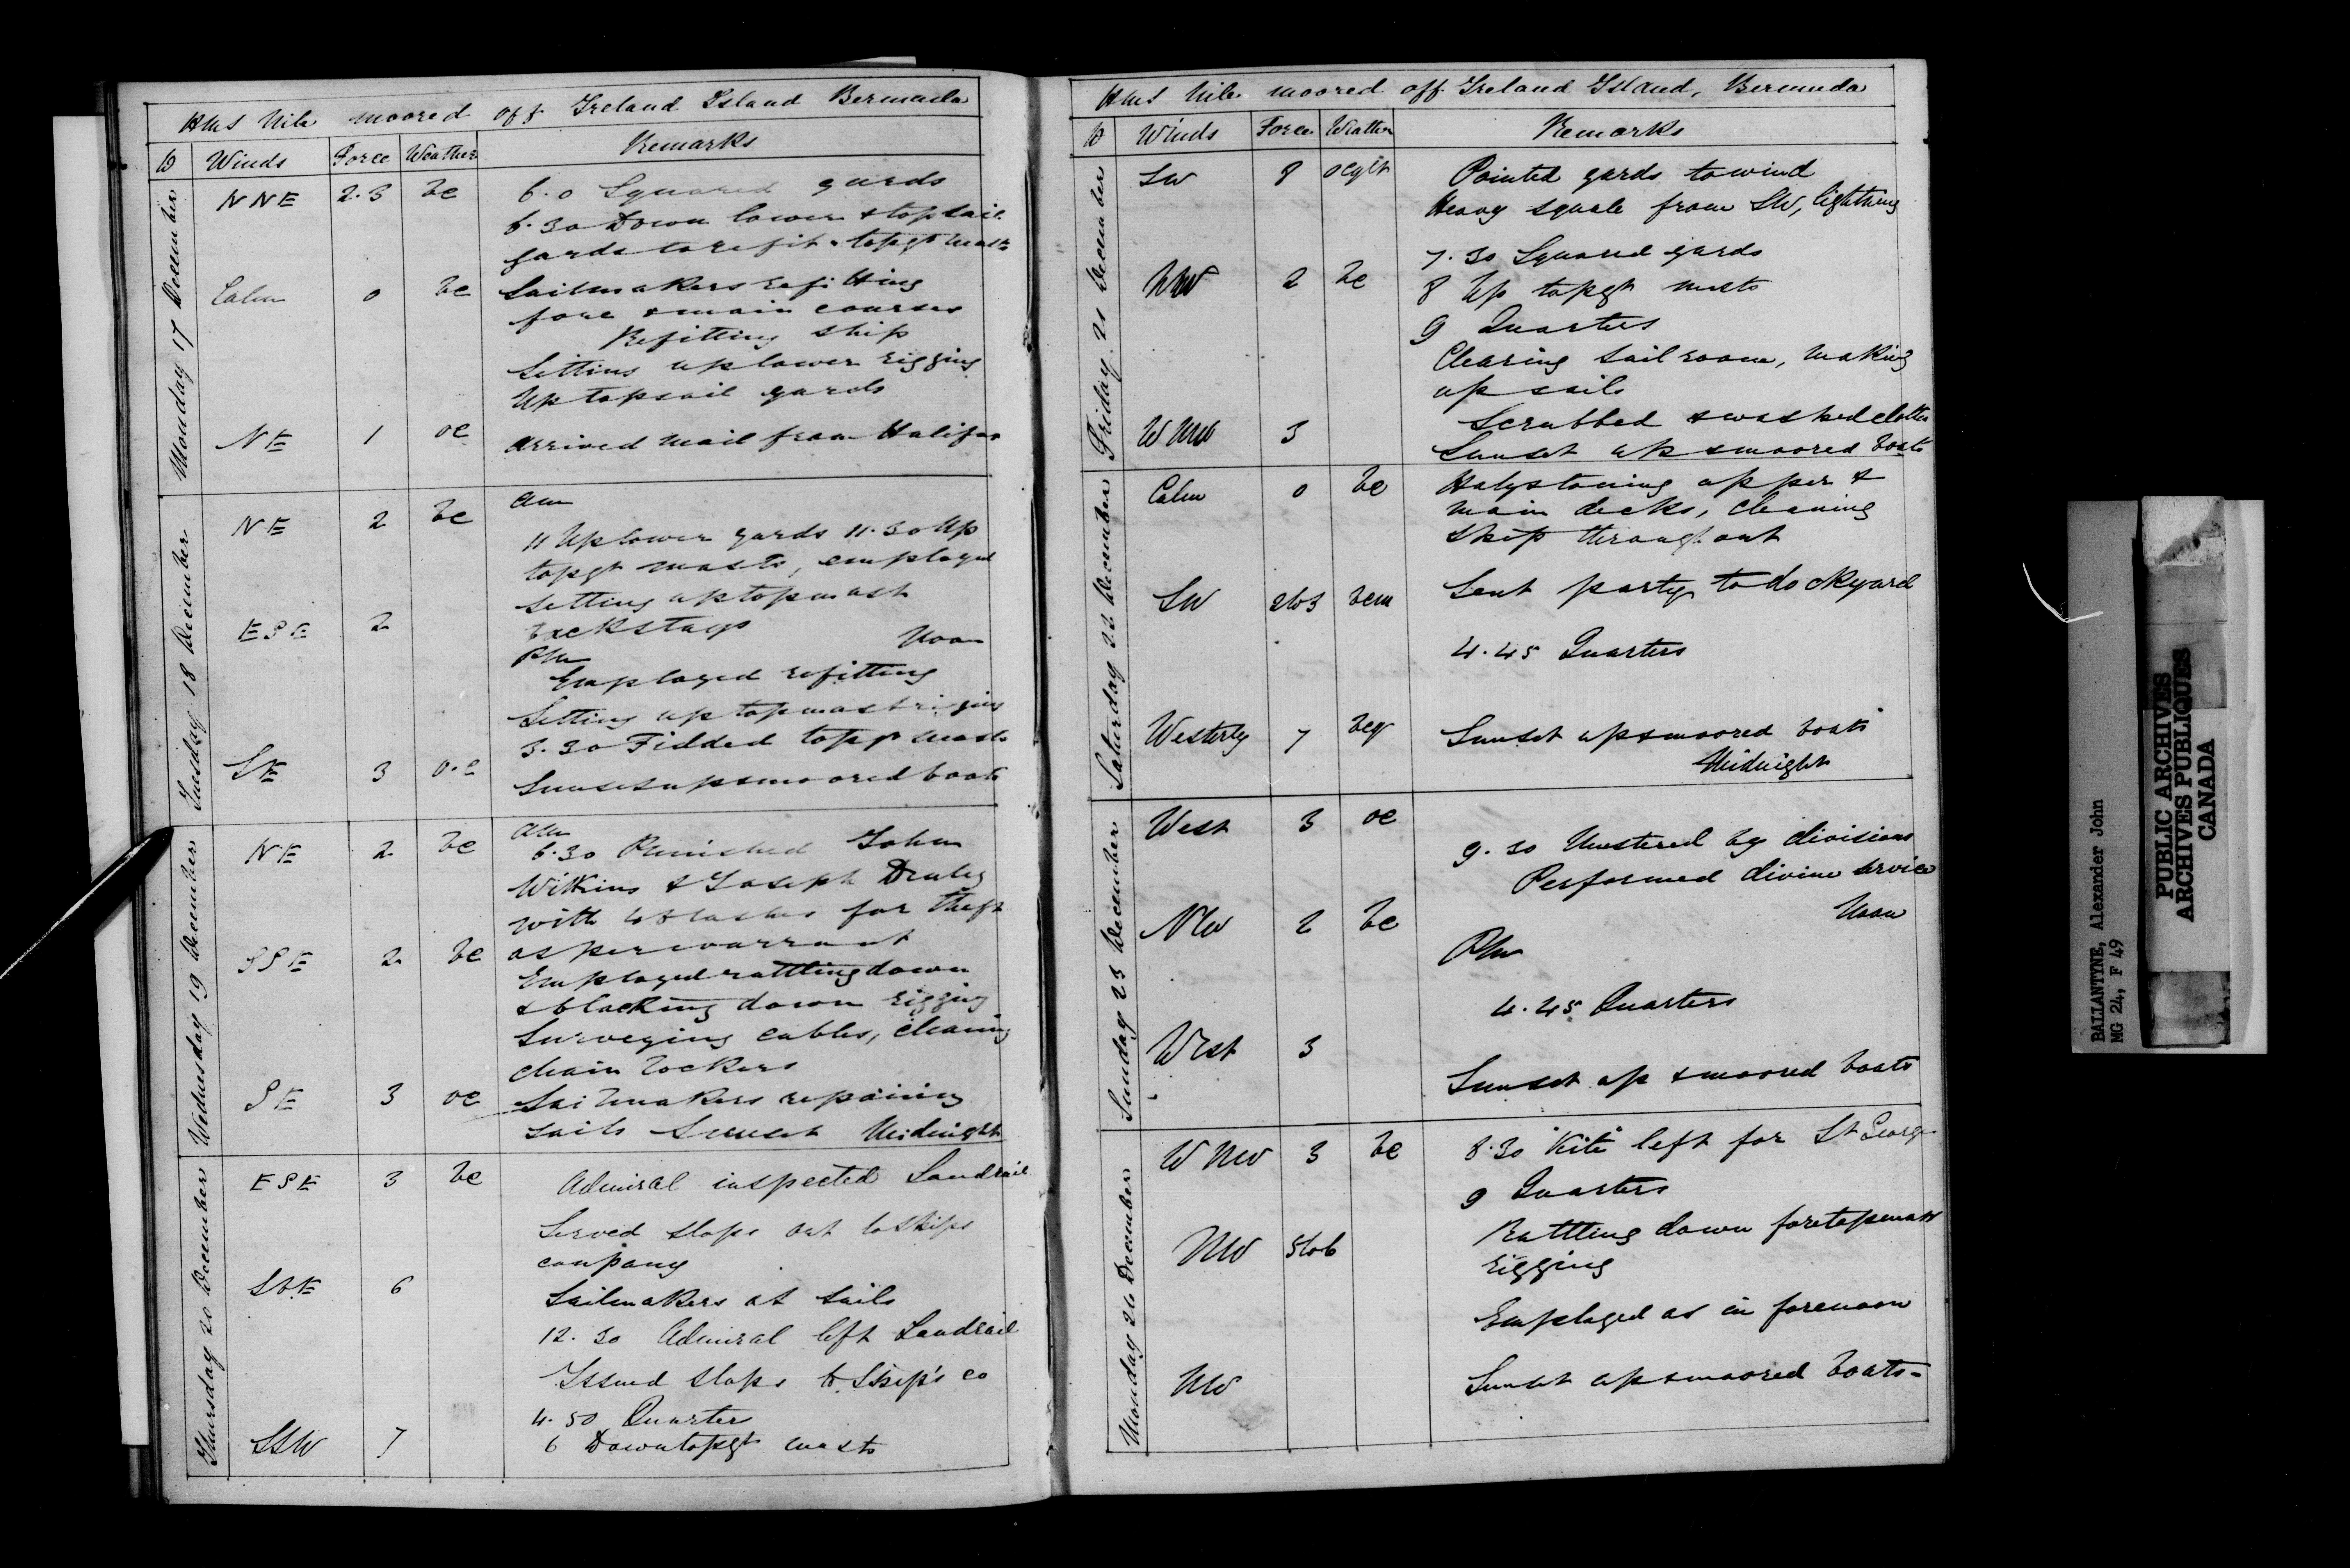 HMS Nile moored off Ireland Island Bermuda
D Winds Force Weather Remarks
Monday 17 December
NNE 2.3 bc 6.0 Squared yards
6.30 Down lower & topsail
yards to refit & topgt masts
Calm 0 bc Sailmakers refitting
fore & main courses
Refitting ship
Setting up lower rigging
Up topsail yards
NE 1 oc Arrived mail from Halifax
Tuesday 18 December
NE 2 bc am
11 Up lower yards 11.30 Up
topgt masts, employed
setting up topmast
ESE 2 backstays Noon
PM
Employed refitting
Setting up topmast rigging
3.30 Fidded topgt masts
SE 3 o.c Sunset up & moored boats
Wednesday 19 December
NE 2 bc am
6.30 Punished John
Wilkins & Joseph
with lashes for theft
SSE 2 bc as per warrant
Employed rattling down
& blacking down rigging
Surveying cables, cleaning
chain lockers
SE 3 oc Sailmakers repairing
sails Sunset Midnight
Thursday 20 December
ESE 3 bc Admiral inspected Landrail
Served slops out to ships
company
SbE 6
Sailmakers at sails
12.30 Admiral left Landrail
Issued slops to Ship's co
4.50 Quarters
SSW 7 6 Down topgt masts
HMS Nile moored off Ireland Island, Bermuda
D Winds Force Weather Remarks
Friday 21 December
SW 8 ocqlt Pointed yards to wind
Heavy squall from SW, lightning
7.30 Squared yards
NW 2 bc 8 Up topgt masts
9 Quarters
Clearing sail room, making
up sails
WNW 3 Scrubbed & washed clothes
Sunset up & moored boats
Saturday 22 December
Calm 0 bc Holystoning upper &
main decks, cleaning
ship throughout
SW 2to3 bcm Sent party to dockyard
4.45 Quarters
Westerly 7 bcq Sunset up & moored boats
Midnight
Sunday 23 December
West 3 oc
9.30 Mustered by divisions
Performed divine service
NW 2 bc Noon
PM
4.45 Quarters
West 3
Sunset up & moored boats
Monday 24 December
WNW 3 bc 8.30 "Kite" left for St George
9 Quarters
NW 5to6 Rattling down foretopmast
rigging
Employed as in forenoon
NW Sunset up & moored boats
BALLANTYNE, Alexander John
MG 24, F 49
PUBLIC ARCHIVES
ARCHIVES PUBLIQUES
CANADA